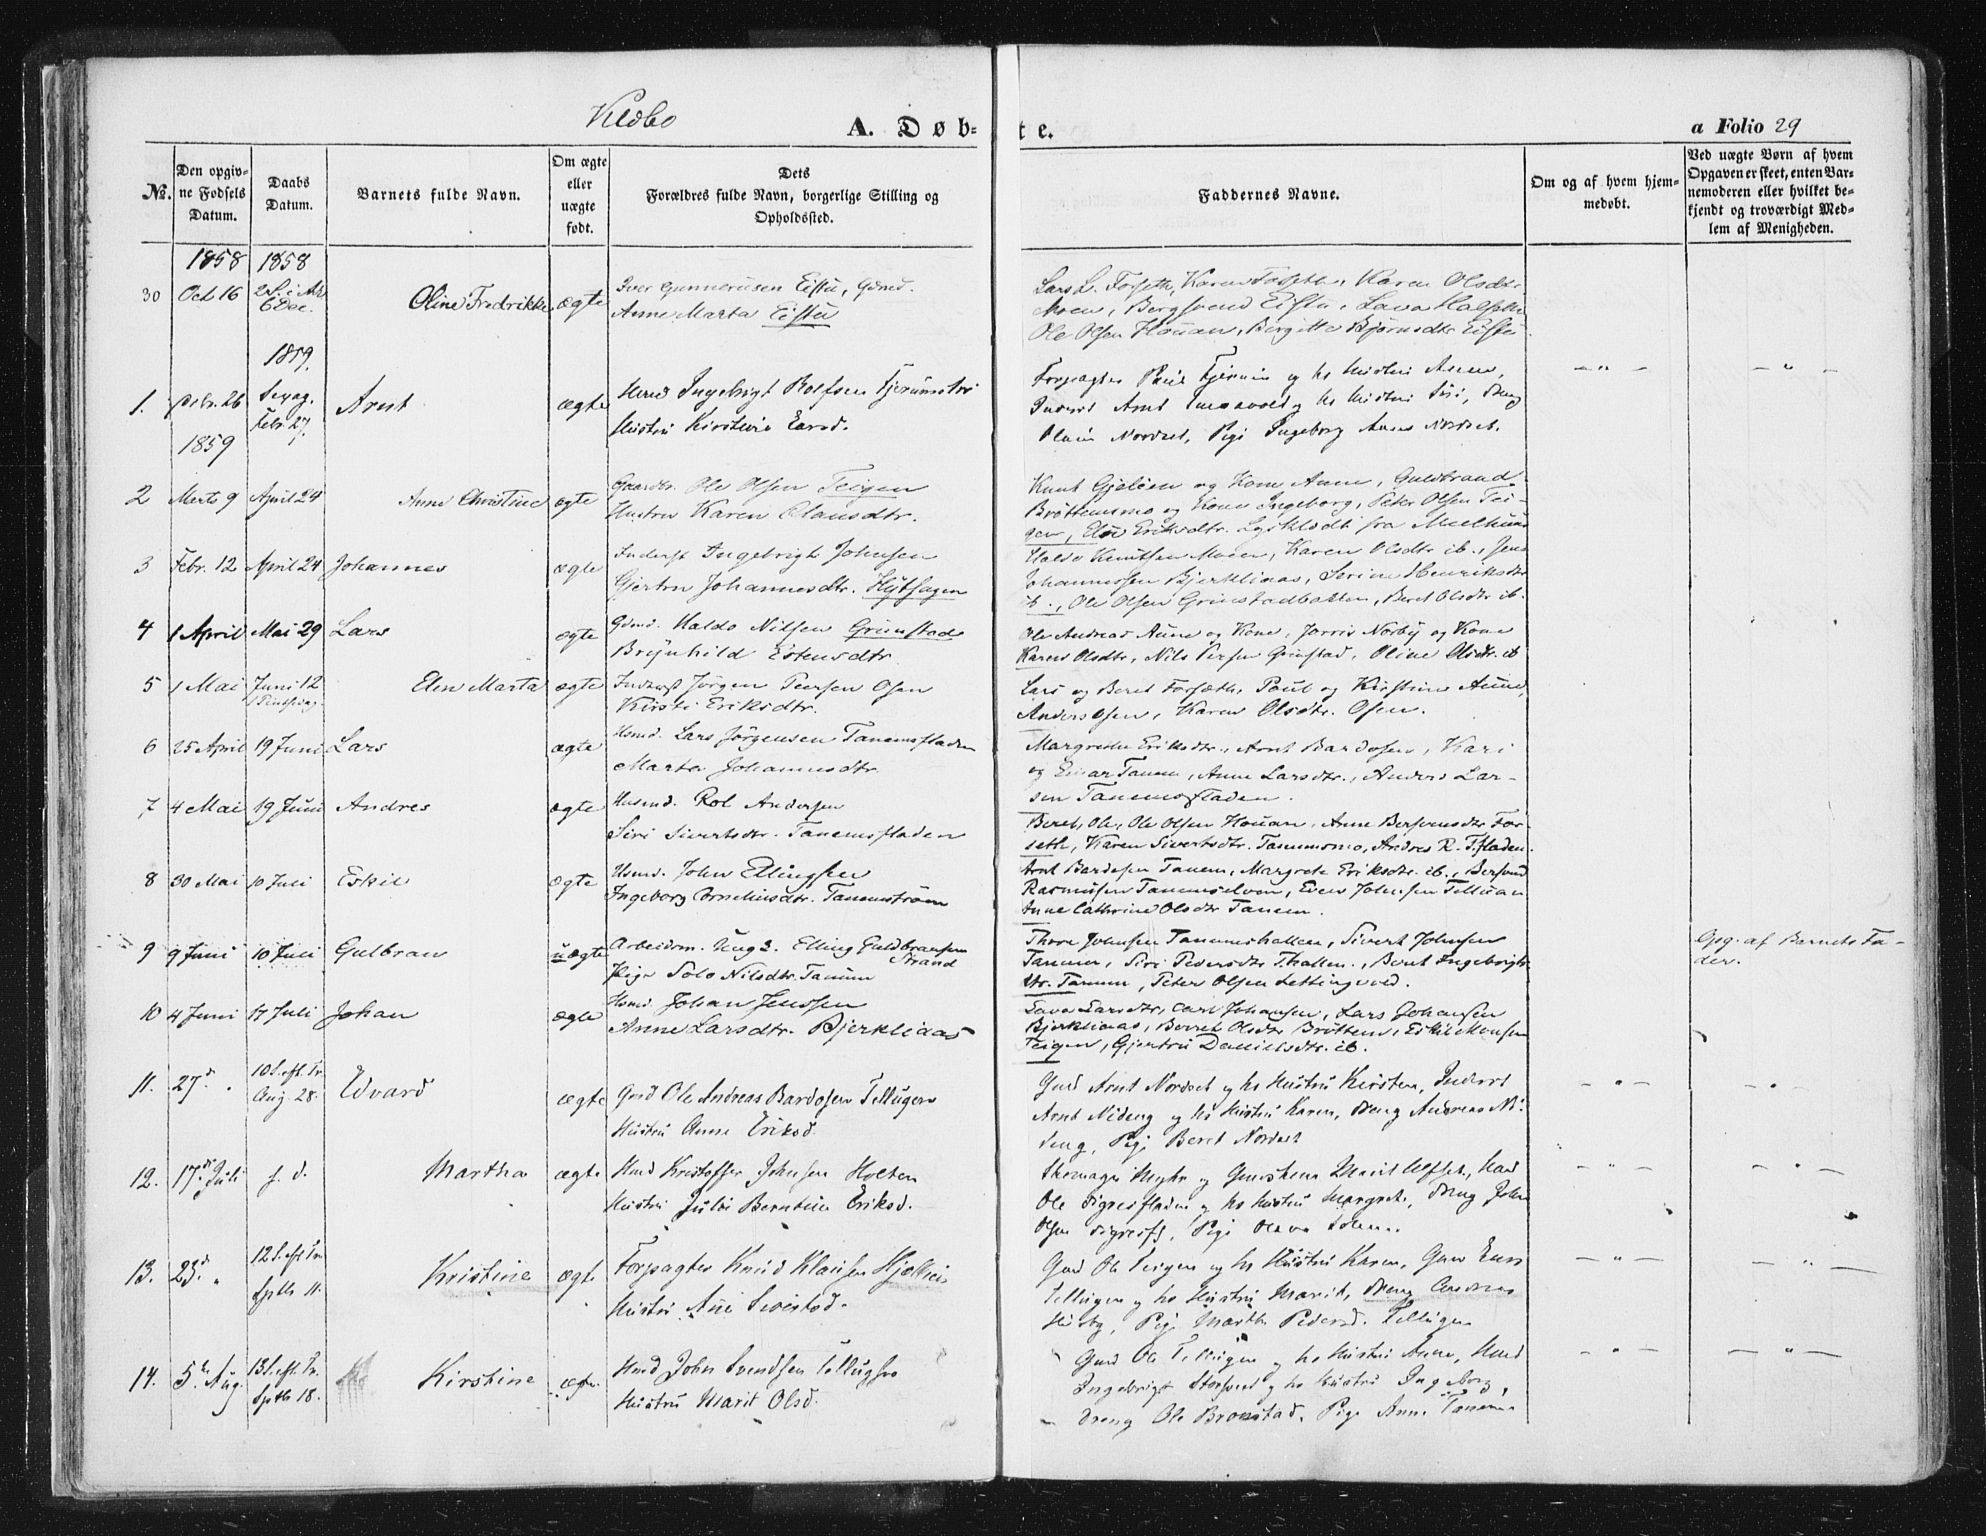 Kldbo
A. Døb-
te.
a Folio 29
No.
Den opgiv-
ne Fødsels
Datum.
Daabs
Datum.
Barnets fulde Navn.
Om ægte
eller
uægte
født.
Dets
Forældres fulde Navn, borgerlige Stilling og
Opholdssted.
Faddernes Navne.
Om og af hvem hjem-
medøbt.
Ved uægte Børn af hvem
Opgaven er skeet, enten Bar-
nemoderen eller hvilket be-
kjendt og troværdigt Med-
lem af Menigheden.
1858 1858
30 Oct 16 2 S. i Adv. 6 Dec. Oline Fredrikke ægte Iver Gunnerusen Eistu, Gdmd.
Anne Marta Eistu
Lars L. Forseth, Karen Forseth, Karen Olsdtr
Moen, Bergsvend Eistu, Lava
Ole Olsen Houan, Birgitte Bjørnsdtr Eistu
1859.
1. Febr. 27. Arnt ægte Ingebrigt Rolfsen
Hustru Kirstine Larsd.
Forpagter Paul og hs Hustru Anne,
Inderst Arnt og hs Hustru Siri, Dreng
Nordset, Pige Ingeborg Nordset.
1859
2 Merts 9 April 24 Anne Christine ægte Gaardbr. Ole Olsen Teigen
Hustru Karen Clausdtr.
Knut Gjelien og Kone Anne, Guldbrand
Brøttemsmo og Kone Ingeborg, Peter Olsen Tei-
gen, Else Eriksdtr. fra Meelhuus
3 Febr. 12 April 24 Johannes ægte Inderst Ingebrigt Johnsen
Gjertru Johannesdtr. Hytfagen
Haldo Knutsen Moen, Karen Olsdtr ib., Jens
Johannessen Bjerkliaas, Serine Henriksdtr
ib., Ole Olsen Grinstadbakken, Beret Olsdtr ib.
4 1 April Mai 29 Lars ægte Gdmd. Haldo Nilsen Grinstad
Brynhild Estensdtr.
Ole Andreas Aune og Kone, Norby og Kone
Karen Olsdtr, Nils Persen Grinstad, Oline Olsdtr. ib
5 1 Mai Juni 12 Elen Marta ægte Inderst Jørgen Peersen Osen
1 Pintsedag Kirsti Eriksdtr.
Lars og Beret Forseth, Poul og Kirstine Aune,
Anders Osen, Karen Olsdtr. Osen.
6 25 April 19 Juni Lars ægte Hsmd. Lars Jørgensen Tanemsfladen
Marta Johannesdtr.
Margrethe Eriksdtr., Arnt Bardosen, Kari
og Einar Tanem, Anne Larsdtr., Anders Lar-
sen Tanemsfladen.
7 4 Mai 19 Juni Andres ægte Husmd. Rol Andersen
Siri Sivertsdtr. Tanemsfladen
Beret, Ole, Ole Olsen Houan, Anne Bersvensdtr For-
seth, Karen Sivertsdtr. Tanemsmo, Andres R. T.fladen.
8 30 Mai 10 Juli Eskil ægte Hsmd. John Ellingsen
Ingeborg Corneliusdtr. Tanemstrøen
Arnt Bardosen Tanem, Margrete Eriksdtr. ib., Bersvend
Rasmusen Tanemselven, Even Johnsen Telluan
Anne Cathrine Olsdtr Tanem.
9 9 Juni 10 Juli Gulbran uægte Arbeidsm. Ungk. Elling Guldbransen
Strand
Pige Solo Nilsdtr. Tanem
Thore Johnsen Tanemshallen, Sivert Johnsen
Tanem, Siri Pedersdtr T.hallen., Beret Ingebrigts-
dtr. Tanem, Peter Olsen Lettingvold.
Opg. af Barnets Fa-
der.
10 4 Juni 17 Juli Johan ægte Hsmd. Johan Jenssen
Anne Larsdtr. Bjerkliaas
Lava Larsdtr, Carl Johansen, Lars Johansen
Bjerkliaas, Berret Olsdtr Brøttem, Eskil Monsen
Teigen, Gjertru Danielsdtr. ib.
11. 27d " 10 S. eft. Tr. Aug 28. Edvard ægte Gmd Ole Andreas Bardosen Tellugen
Hustru Anne Eriksd.
Gmd Arnt Nordset og hs Hustru Kirsten, Inderst
Arnt Nideng og hs Hustru Karen, Dreng Andreas Ni-
deng, Pige Beret Nordset
- " - - " -
12. 17de Juli s. d. Martha ægte Hmd Kristoffer Johnsen Holten
Hustru Juli Berntine Eriksd.
Skomager Myhr og Marit, Hmd
Ole Digresfladen og hs Hustru Margret, Dreng John
Olsen, Pige Olava
- " - - " -
13. 23d " 12 S. eft Tr. Septb 11. Kristine ægte Forpagter Knud Klausen Hjellien
Hustru Ane Sivertsd.
Gmd Ole Teigen og hs Hustru Karen, Gmd
Tellugen og hs Hustru Marit, Dreng Andreas
Husby, Pige Marth Pedersd. Tellugen
- " - - " -
14. 5te Aug. 13 S. eft. Tr. Septb 18. Kirstine ægte Hmd John Svendsen
Hustru Marit Olsd.
Gmd Ole Tellugen og hs Hustru Anne, Hmd
Ingebrigt og hs Hustru Ingeborg,
Dreng Ole Bronstad, Pige Anne Tanem
- " - - " -